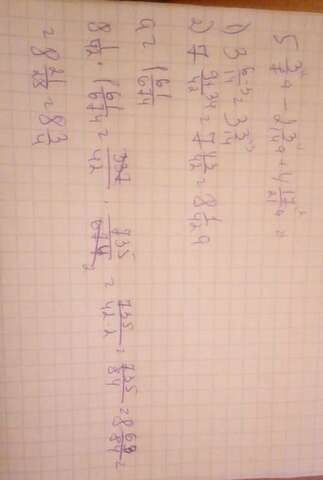 5 3/7 q - 2 3/14 q + 4 17/21 q =
1) 3 6-3/14 = 3 3/14
2) 7 9+34/42 = 7 43/42 = 8 1/42 q
q = 1 61/674
8 1/42 · 1 61/674 = 337/42 · 735/674 = 735/42·2 = 735/84 = 8 63/84 =
= 8 21/28 = 8 3/4